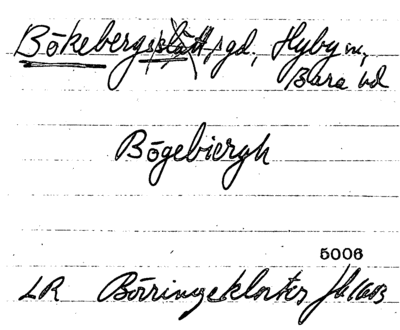 Bökeberg gd, Hyby sn,
Bara hd
Bögebiergh
5006
LR Börringekloster Jb 1603